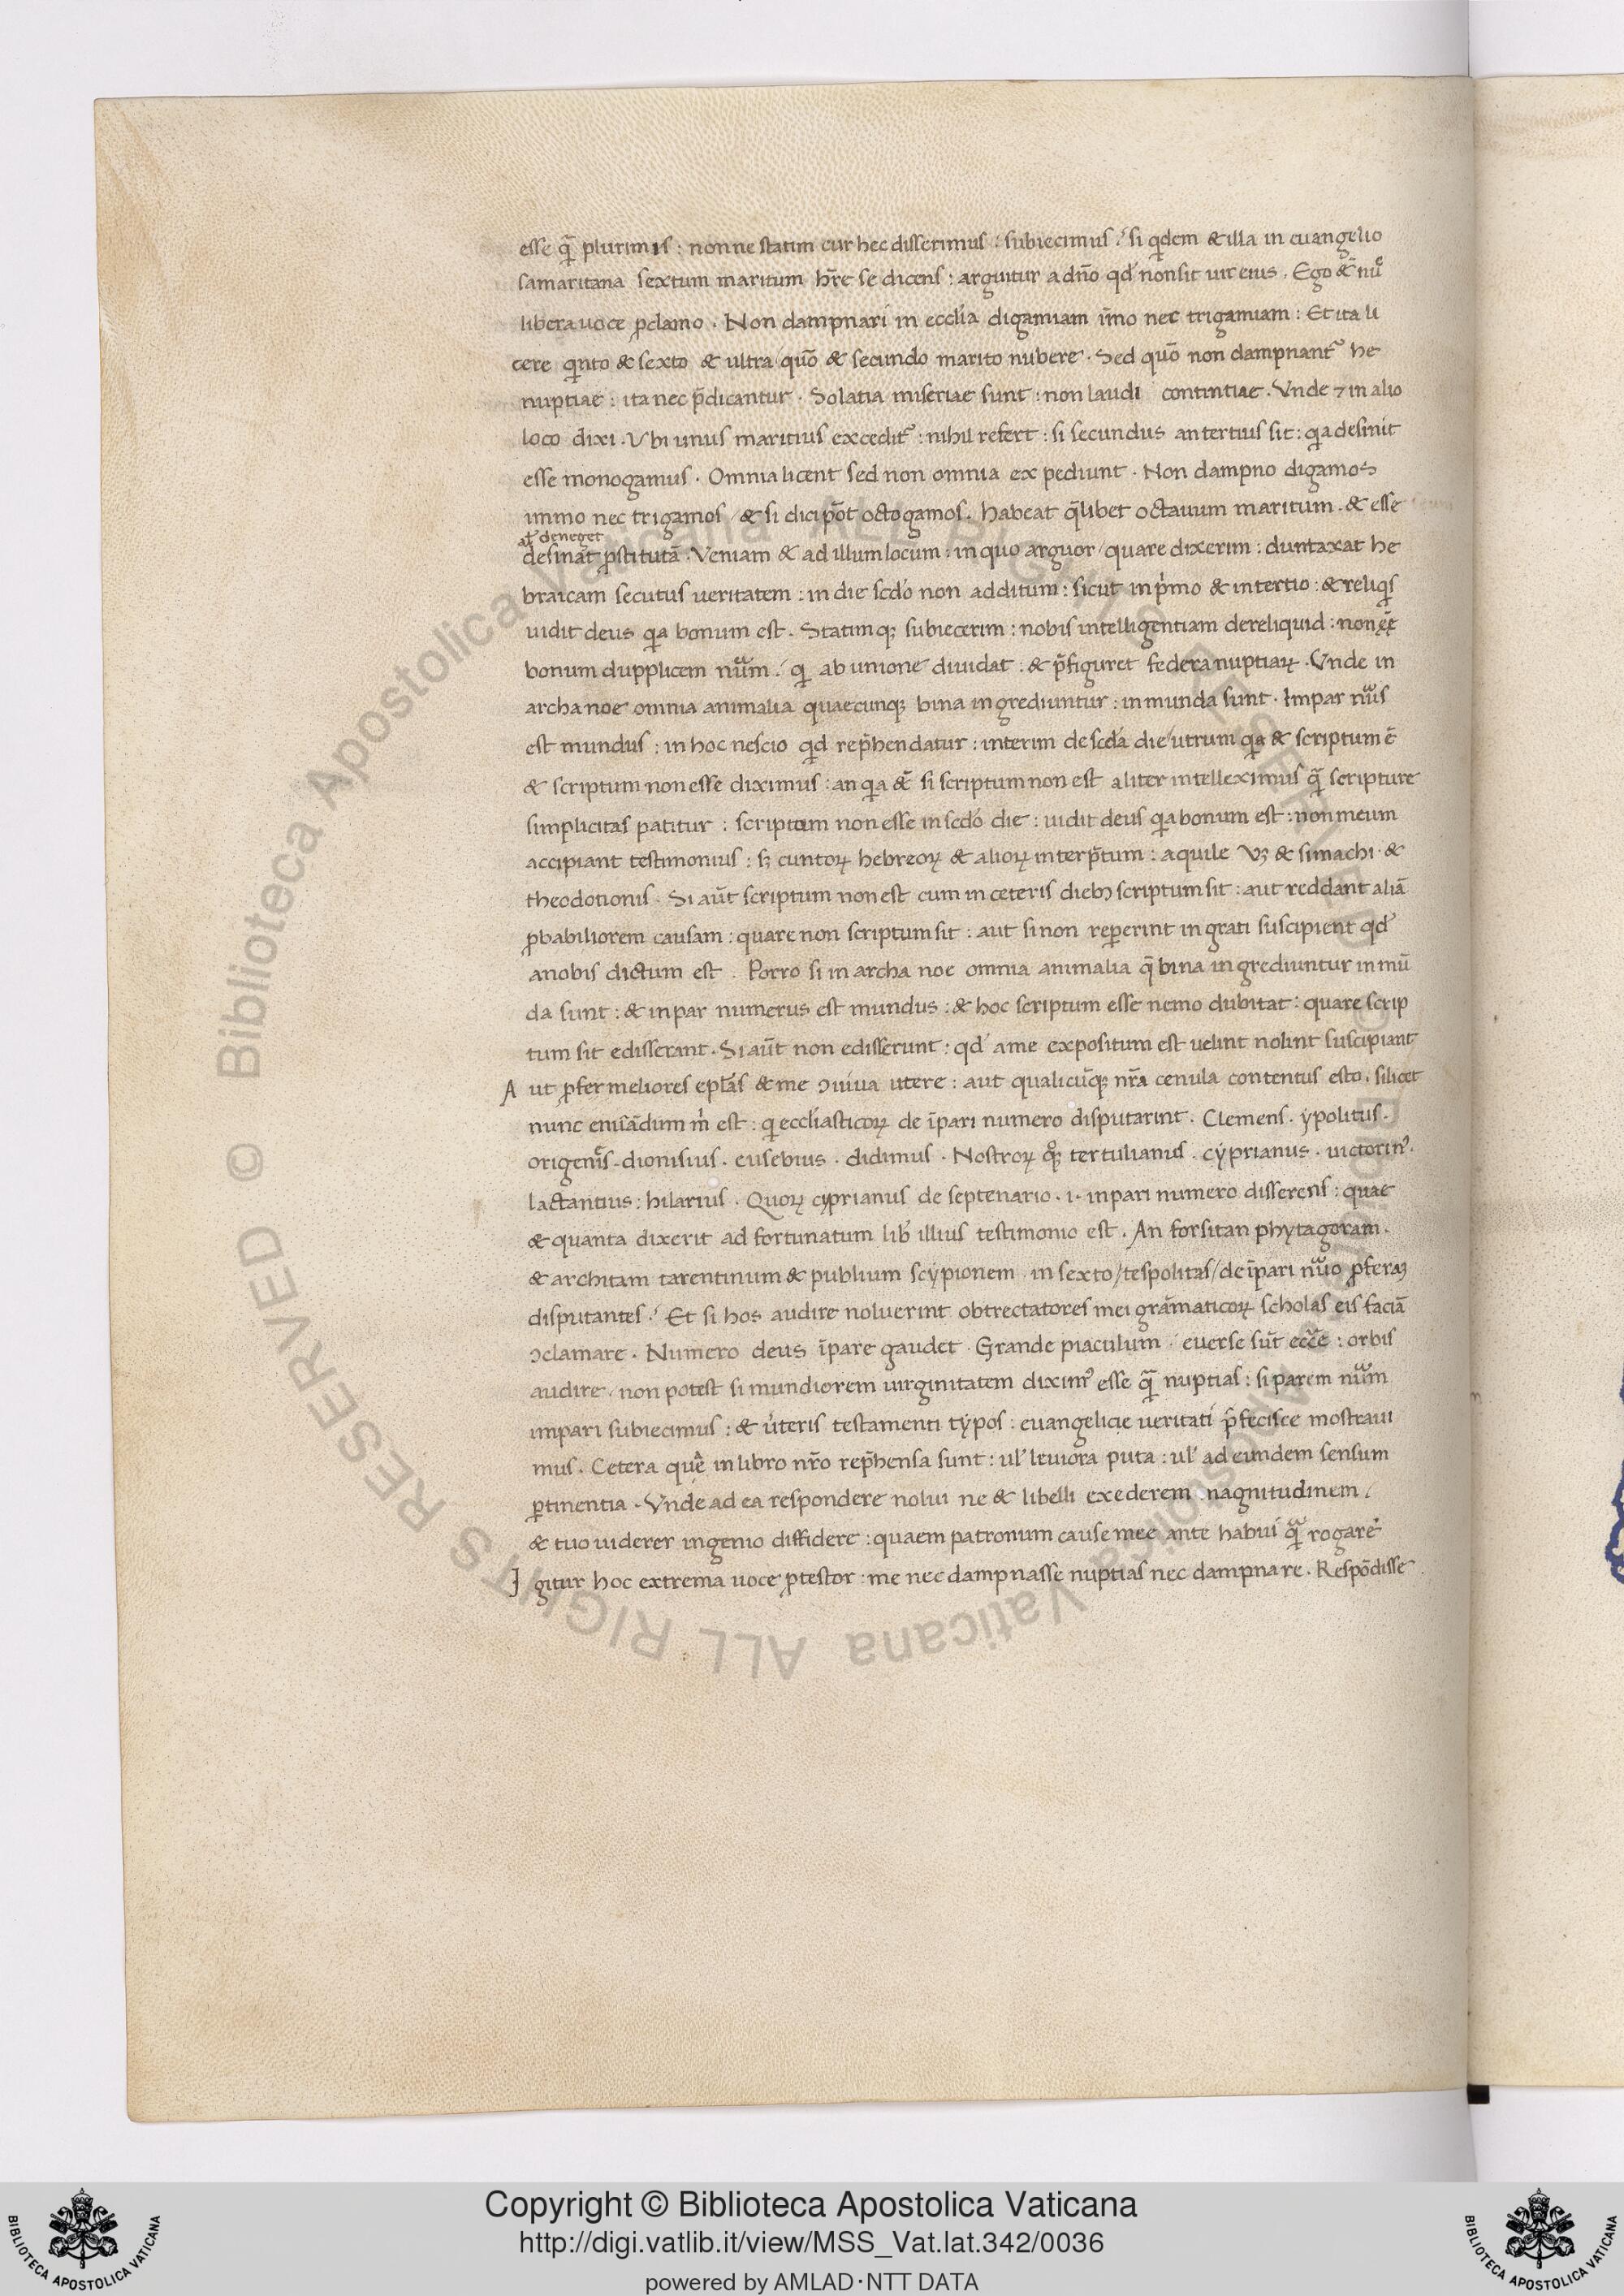 esse q̄ plurimis : nonne statim cur hec disserimus / subiecimus ? si qdem & illa in euangelio
samaritana sextum maritum hr̄e se dicens : arguitur a dn̄o qd' non sit uir eius . Ego & nūc
libera uoce ꝓclamo . Non dampnari in ecclīa digamiam īmo nec trigamiam : Et ita li
cere qinto & sexto & ultra / quō & secundo marito nubere . Sed quō non dampnantᷣ he
nuptiae : ita nec p̄dicantur . Solatia miseriae sunt : non laudi contintiae . Vnde ⁊ in alio
loco dixi . Vbi unus maritus exceditᷣ : nihil refert : si secundus an tertius sit : qa desinit
esse monogamus . Omnia licent sed non omnia expediunt . Non dampno digamos
immo nec trigamos / & si dici pōt octogamos . habeat q̄libet octauum maritum . & esse
al' deneget
desinat ꝓstitutā . Veniam & ad illum locum : in quo arguor / quare dixerim : duntaxat he
braicam secutus ueritatem : in die scdo non additum : sicut in pͥmo & in tertio : & reliqis
uidit deus qa bonum est . Statimqꝫ subiecerim : nobis intelligentiam dereliquid : non ēē
bonum dupplicem nūm / qi ab unione diuidat : & p̄figuret federa nuptiaꝝ . Vnde in
archa noe omnia animalia quaecunqꝫ bina ingrediuntur : inmunda sunt . Impar nūs
est mundus : in hoc nescio qd rep̄hendatur : interim de scda die / utrum qa & scriptum ē
& scriptum non esse diximus : an qa & si scriptum non est aliter intelleximus q̄ scripture
simplicitas patitur : scriptum non esse in scdo die : uidit deus qa bonum est : non meum
accipiant testimonius : sꝫ cuntoꝝ hebreoꝝ & alioꝝ interp̄tum : aquile vꝫ & simachi . &
theodotionis . Si aūt scriptum non est cum in ceteris diebꝫ scriptum sit : aut reddant aliā
ꝓbabiliorem causam : quare non scriptum sit : aut si non reperint ingrati suscipient qd'
a nobis dictum est . Porro si in archa noe omnia animalia q̄ bina ingrediuntur inmū
da sunt : & inpar numerus est mundus : & hoc scriptum esse nemo dubitat : quare scrip
tum sit edisserant . Si aūt non edisserunt : qd' a me expositum est uelint nolint suscipiant
A ut ꝓfer meliores epl̄as & me ꝯuiua utere : aut qualicūqꝫ nr̄a cenula contentus esto . silicet
nunc enūādum m̄ est : qi eccl'iasticoꝝ de īpari numero disputarint . Clemens . ẏpolitus .
origenes . dionisius . eusebius . didimus . Nostroꝝ qꝫ tertulianus . cẏprianus . uictorinꝰ .
lactantius : hilarius . Quoꝝ cyprianus de septenario . i . inpari numero disserens : quae
& quanta dixerit ad fortunatum lib' illius testimonio est . An forsitan phytagoram .
& architam tarentinum & publium scẏpionem / in sexto / tespolitas / de īpari nūo ꝓferaꝫ
disputantes ? Et si hos audire noluerint obtrectatores mei grāmaticoꝝ scholas eis faciā
ꝯclamare . Numero deus īpare gaudet . Grande piaculum / euerse sūt ecc̄e : orbis
audire / non potest si mundiorem uirginitatem diximꝰ esse q̄ nuptias : si parem nūm
impari subiecimus : & uͥteris testamenti tẏpos : euangelicie ueritati p̄fecisce mostraui
mus . Cetera quē in libro nr̄o rep̄hensa sunt : ul' leuiora puta : ul' ad eundem sensum
ꝑtinentia . Vnde ad ea respondere nolui ne & libelli exederem nagnitudinem /
& tuo uiderer ingenio diffidere : quaem patronum cause mee ante habui q̄ rogarē
I gitur hoc extrema uoce ꝓtestor : me nec dampnasse nuptias nec dampnare . Respōdisse
© Biblioteca Apostolica Vaticana ALL RIGHTS RESERVED
© Biblioteca Apostolica Vaticana ALL RIGHTS RESERVED
Copyright © Biblioteca Apostolica Vaticana
http://digi.vatlib.it/view/MSS_Vat.lat.342/0036
powered by AMLAD·NTT DATA
BIBLIOTECA APOSTOLICA VATICANA
BIBLIOTECA APOSTOLICA VATICANA